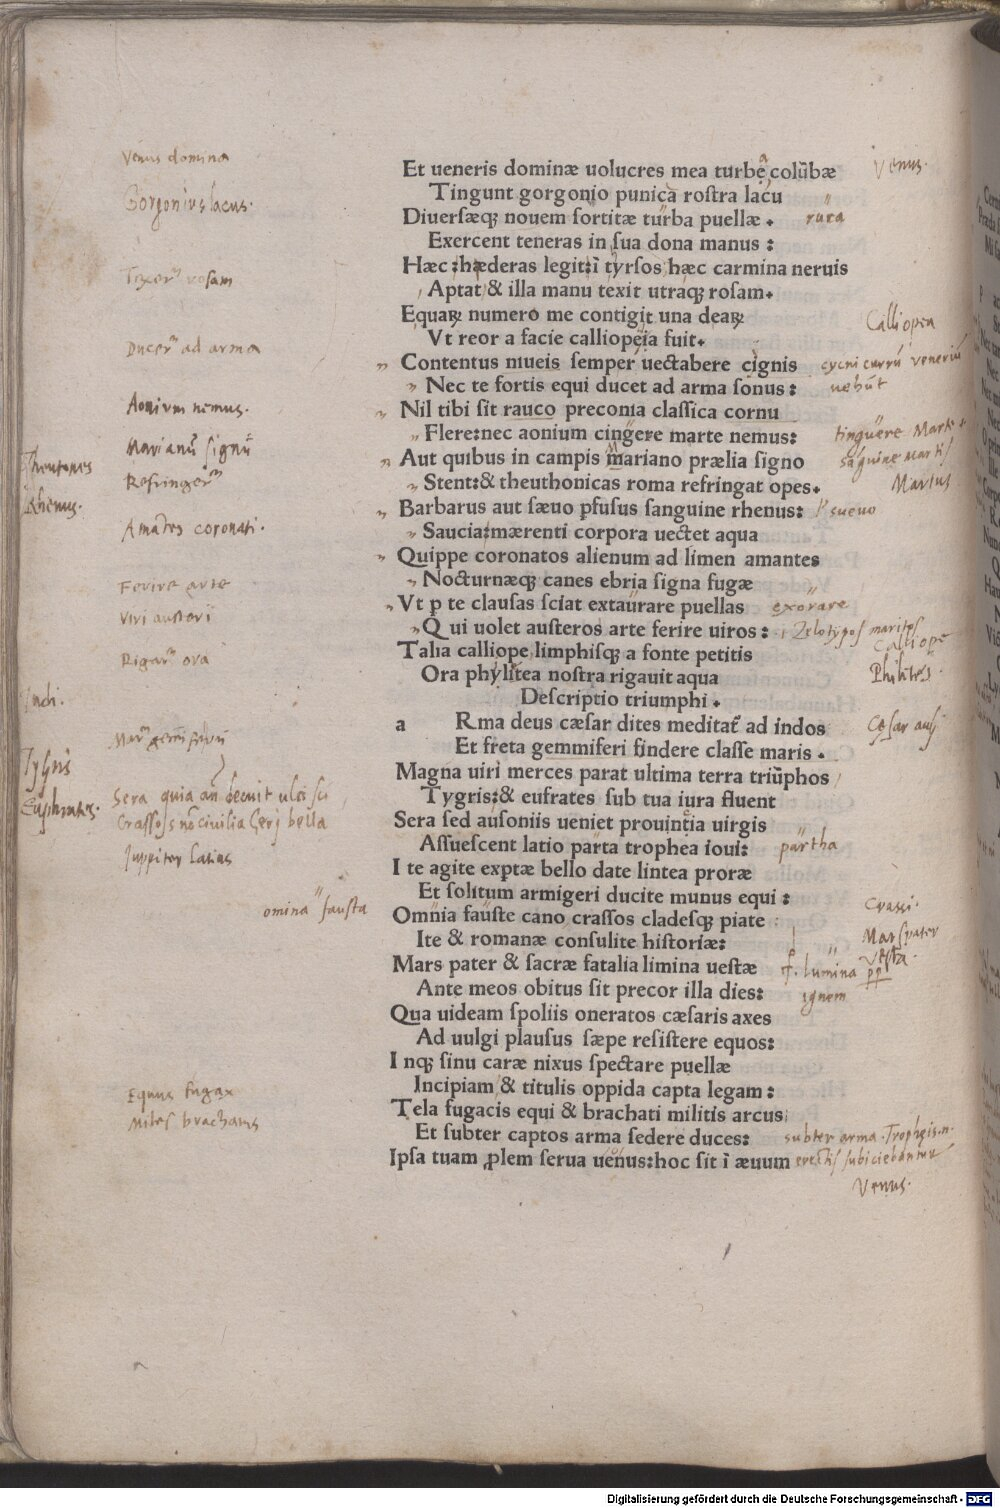 Venus domina
Et ueneris dominæ uolucres mea turbę colūbæ
Venus.
Gorgonius lacus.
Tingunt gorgonio punica rostra lacu
Diuersæq; nouem sortitæ turba puellæ .
rura
Exercent teneras in sua dona manus :
Hæc:hæderas legit:ī tyrsos hæc carmina neruis
rosam
Aptat & illa manu texit utraq; rosam.
Equaꝝ numero me contigit una deaꝝ
Calliopea
Vt reor a facie calliopeia fuit.
ad arma
Contentus niueis semper uectabere cignis
cycni currū veneriū
Nec te fortis equi ducet ad arma sonus :
uehūt
Aonium nemus.
Nil tibi sit rauco preconia classica cornu
Flere:nec aonium cingere marte nemus:
tinguere Marte
Marianū signū
Aut quibus in campis mariano prælia signo
sāguine martis
Theutones
Stent:& theuthonicas roma refringat opes.
Marius
Rhenus.
Barbarus aut sæuo pfusus sanguine rhenus:
sueuo
coronati.
Saucia:mærenti corpora uectet aqua
Quippe coronatos alienum ad limen amantes
Ferire arte
Nocturnæq; canes ebria signa fugæ
Viri austeri
Vt p te clausas sciat extaurare puellas
exorare
Qui uolet austeros arte ferire uiros :
Zelotypos maritos
ora
Talia calliope limphisq; a fonte petitis
Calliope
Ora phylitea nostra rigauit aqua
Indi.
Descriptio triumphi .
a R.ma deus cæsar dites meditat̄ ad indos
Et freta gemmiferi findere classe maris .
Magna uiri merces parat ultima terra triūphos
Tygris:& eufrates sub tua iura fluent
Euphrates.
Sera sed ausoniis ueniet prouintia uirgis
Assuescent latio parta trophea ioui:
partha
Iuppiter latius
I te agite exptæ bello date lintea proræ
Et solitum armigeri ducite munus equi :
omina fausta
Omnia fauste cano crassos cladesq; piate
Crassi.
Ite & romanæ consulite historiæ:
Mars pater
Vesta.
Mars pater & sacræ fatalia limina uestæ
lumina
Ante meos obitus sit precor illa dies:
ignem
Qua uideam spoliis oneratos cæsaris axes
Ad uulgi plausus sæpe resistere equos:
I nq; sinu caræ nixus spectare puellæ
Incipiam & titulis oppida capta legam :
Equus fugax
Tela fugacis equi & brachati militis arcus
Miles brachatus
Et subter captos arma sedere duces:
subter arma. Trophęis.n.
Ipsa tuam ꝓlem serua uenus:hoc sit ī æuum
erectis subiciebantur
Venus.
Digitalisierung gefördert durch die Deutsche Forschungsgemeinschaft - DFG